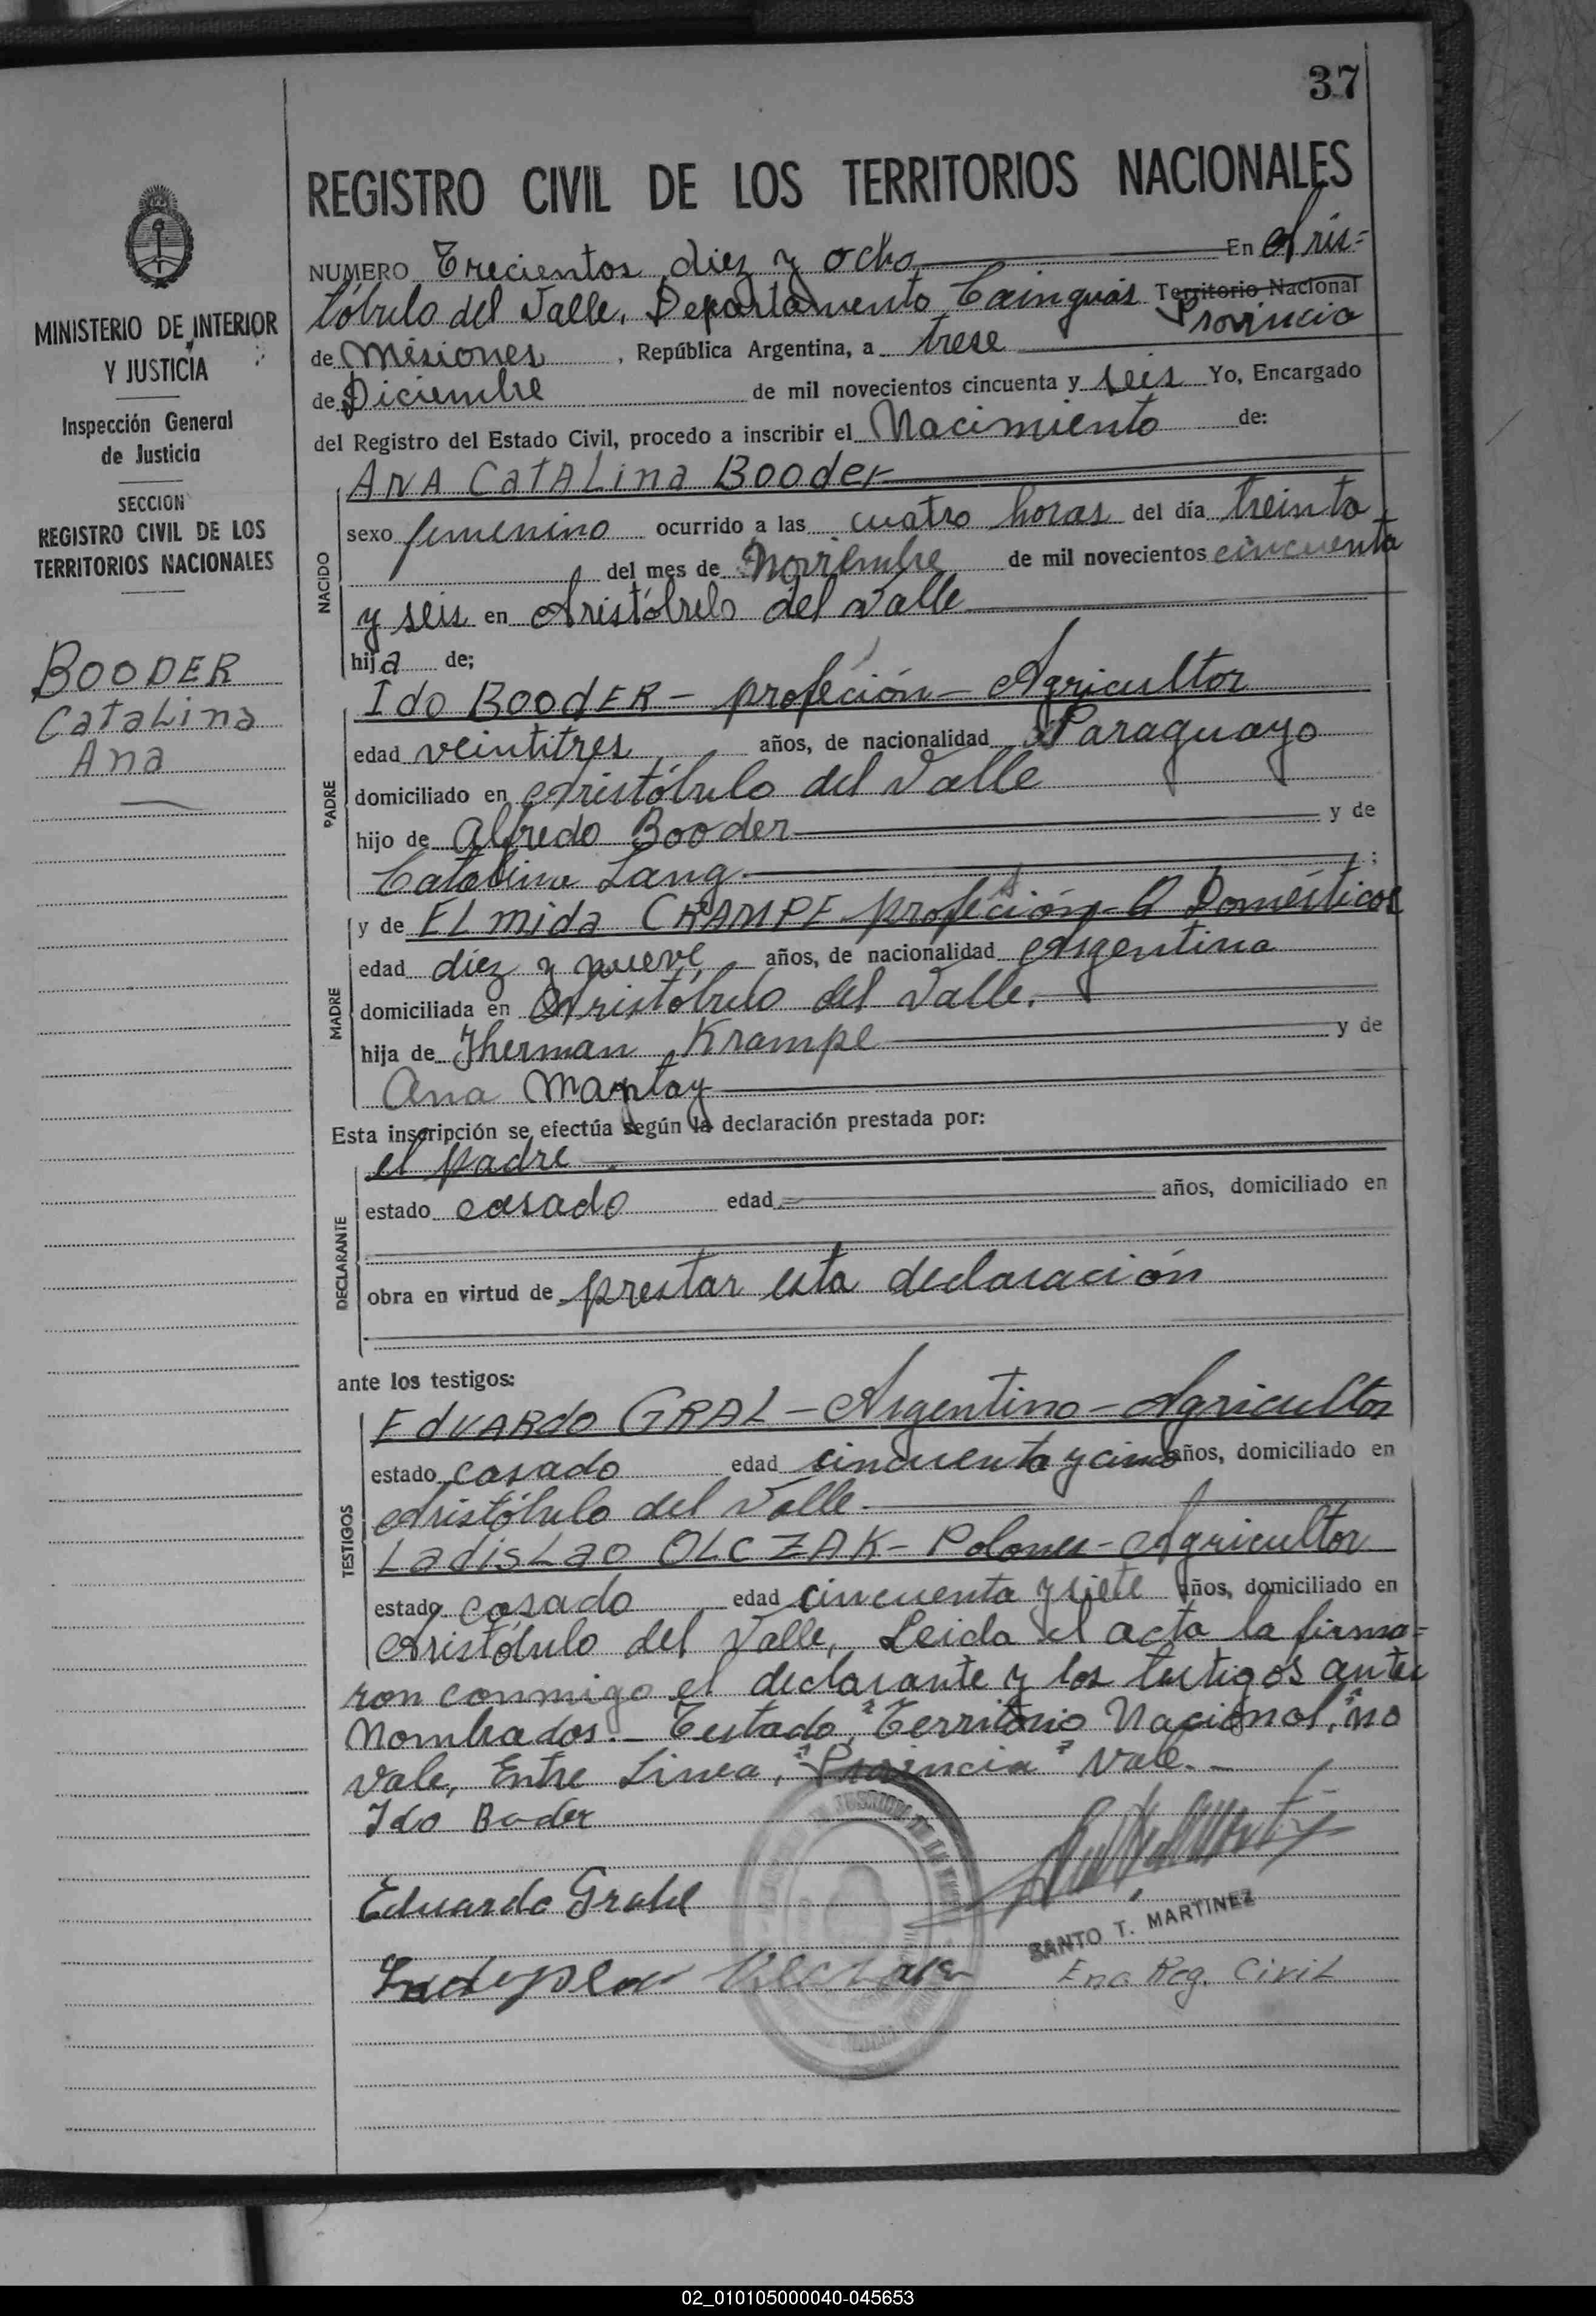 37
REGISTRO CIVIL DE LOS TERRITORIOS NACIONALES
MINISTERIO DE INTERIOR
Y JUSTICIA
Inspección General
de Justicia
SECCION
REGISTRO CIVIL DE LOS
TERRITORIOS NACIONALES
BOODER
Catalina
Ana
NUMERO Trecientos diez y ocho En Aris=
tóbulo del Valle, Departamento Cainguás Territorio Nacional
Provincia
de Misiones, República Argentina, a trese
de Diciembre de mil novecientos cincuenta y seis Yo, Encargado
del Registro del Estado Civil, procedo a inscribir el Nacimiento de:
NACIDO
ANA CATALina BOOder
sexo femenino ocurrido a las cuatro horas del día treinta
del mes de Noviembre de mil novecientos cincuenta
y seis en Aristóbulo del Valle
hija de;
PADRE
Ido BOOdER - profeción - Agricultor
edad veintitres años, de nacionalidad Paraguayo
domiciliado en Aristóbulo del Valle
hijo de Alfredo Booder y de
Catalina Lang ;
MADRE
y de ELmida CRAMPE profeción Q Domésticos
edad diez y nueve años, de nacionalidad Argentina
domiciliada en Aristóbulo del Valle.
hija de Jherman Krampe y de
Ana
Esta inscripción se efectúa según la declaración prestada por:
DECLARANTE
el padre
estado casado edad años, domiciliado en
obra en virtud de prestar esta declaración
ante los testigos:
TESTIGOS
EdUARdo GRAL - Argentino - Agricultor
estado casado edad cincuenta y cinco años, domiciliado en
Aristóbulo del Valle
LadisLao OLCZAK - Polones - Agricultor
estado casado edad cincuenta y siete años, domiciliado en
Aristóbulo del Valle, Leida el acta la firma=
ron conmigo el declarante y los testigos antes
Nombrados.- Testado, "Territorio Nacional," no
vale, Entre Linea, "Provincia" Vale.-
Ido Boder
Eduardo Grahl
SANTO T. MARTINEZ
Enc. Reg. Civil
02_010105000040-045653